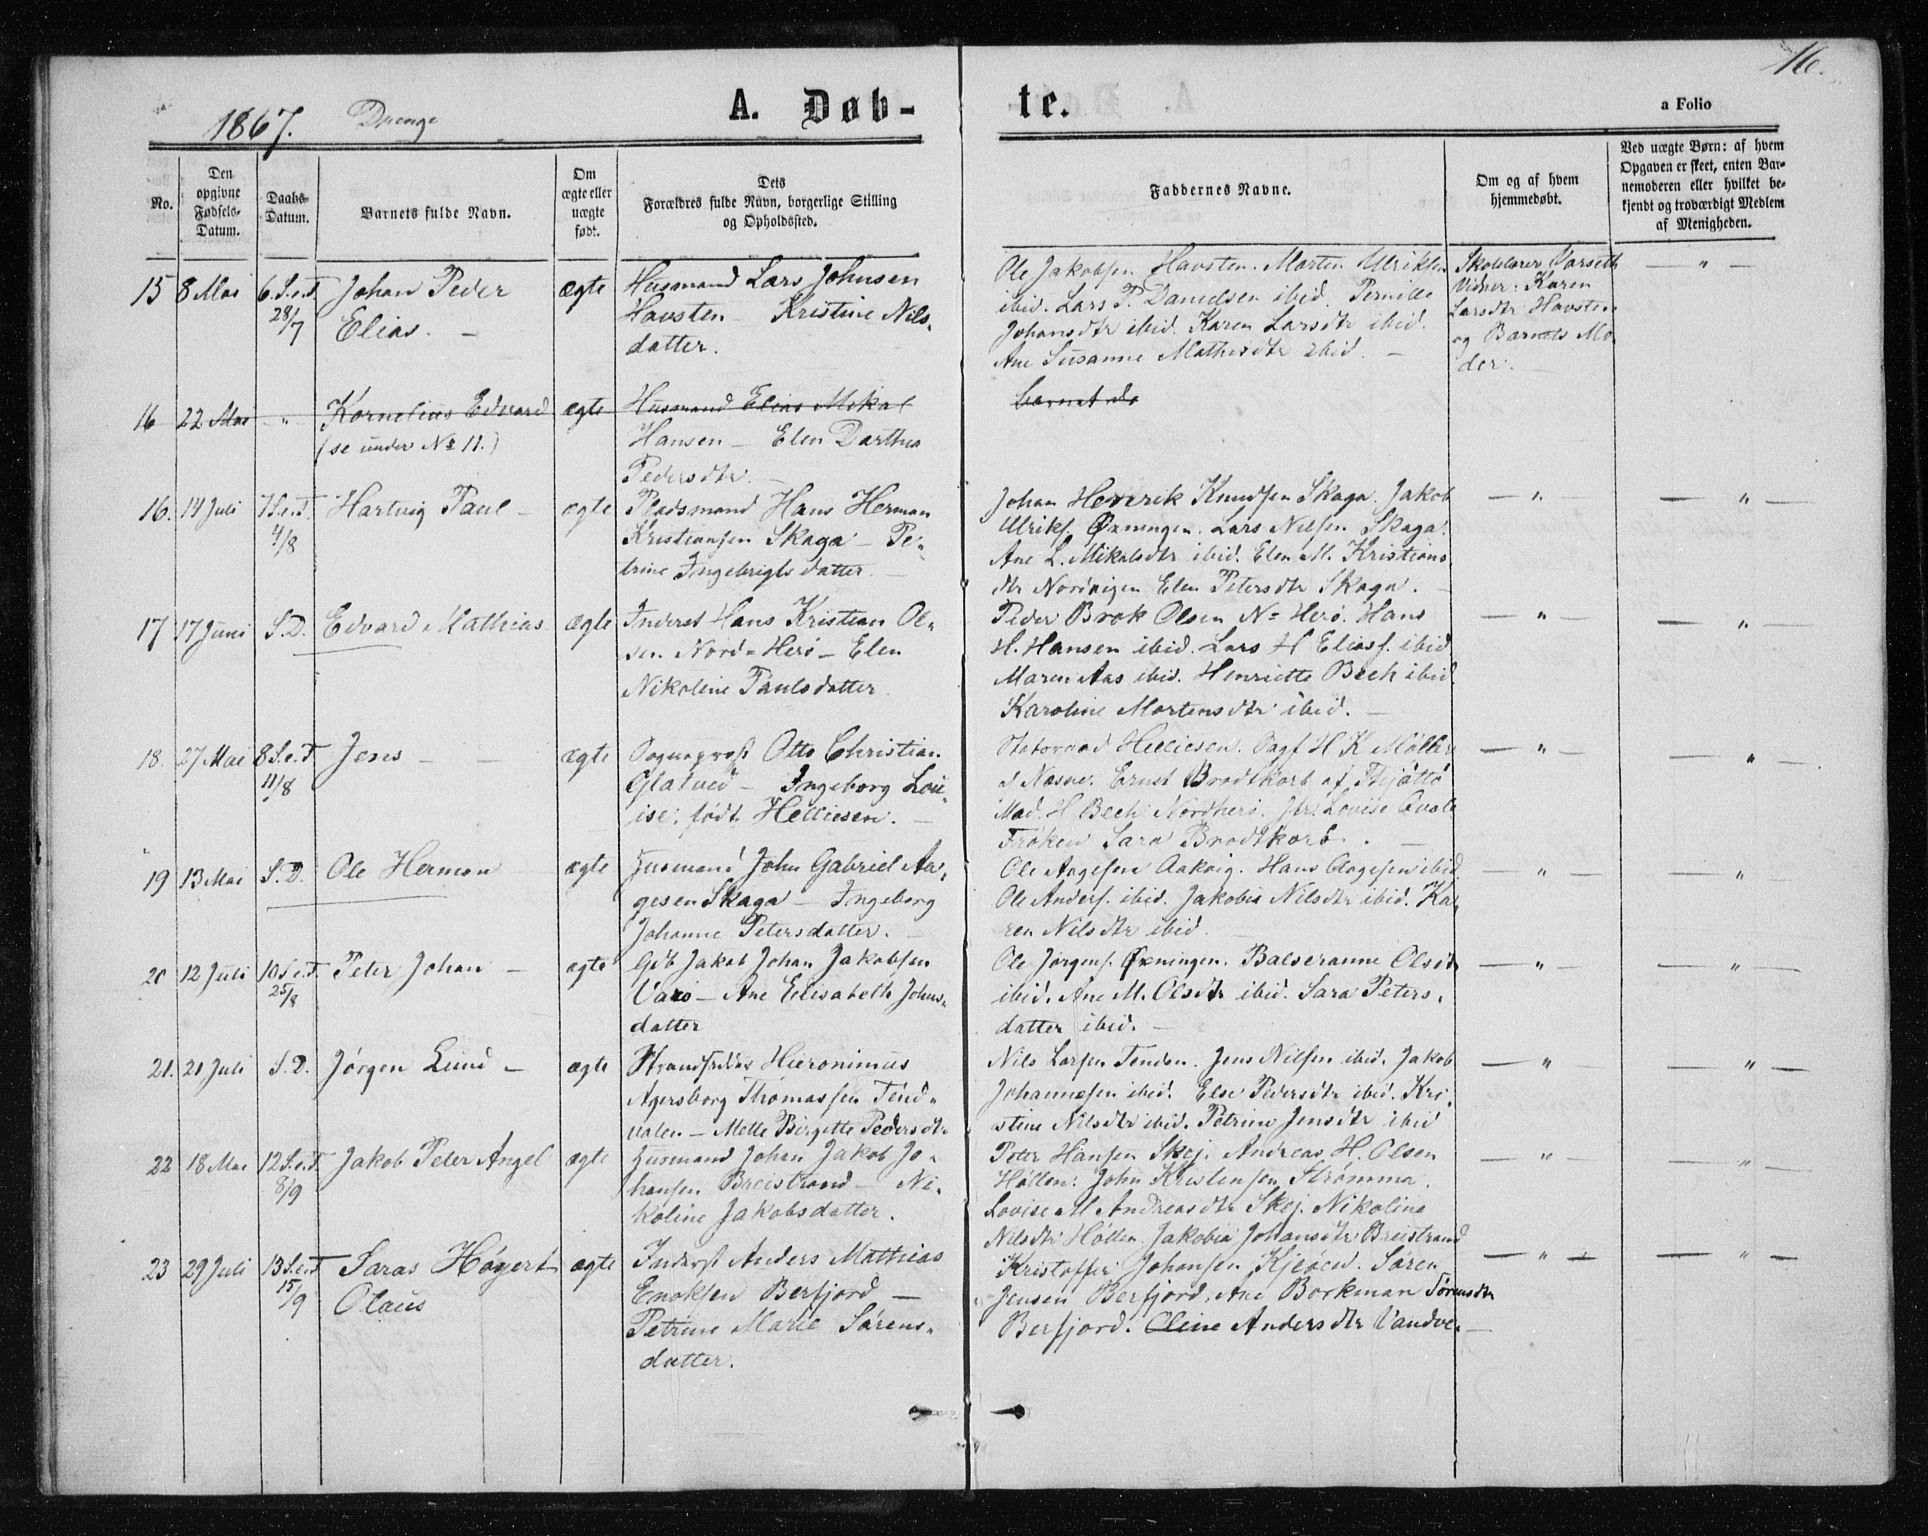 16.
1867. Drenge A. Døb- te. a Folio
No.
Den opgivne Fødsels-Datum.
Daabs-Datum.
Barnets fulde Navn.
Om ægte eller uægte født.
Dets Forældres fulde Navn, borgerlige Stilling og Opholdssted.
Faddernes Navne.
Om og af hvem hjemmedøbt.
Ved uægte Børn: af hvem Opgaven er skeet, enten Barnemoderen eller hvilket bekjendt og troværdigt Medlem af Menigheden.
15 8 Mai 6.S.e.T 28/7
Johan Peder
Elias. –
ægte
Husmand Lars Johnsen
Havsten – Kristine Nils-
datter.
Ole Jakobsen Havsten. Morten Ulriksen
ibid. Lars P. Danielsen ibid. Pernille
Johansdtr ibid. Karen Larsdtr ibid.
Ane Susanne Mathisdtr ibid. –
Skolelærer Varseth
Vidner: Karen
Larsdtr Havsten
og Barnets Mo-
der.
— " —
16 22 Mai — " —
Kornelius Edvard
(se under No 11.)
ægte
Husmand Elias Mikal
Hansen – Elen Darthea
Pedersdtr. –
16. 14 Juli 7S.e.T 4/8
Hartvig Paul –
ægte
Pladsmand Hans Herman
Kristiansen Skaga – Pe-
trine Ingebrigtsdatter. –
Johan Henrik Knudsen Skaga. Jakob
Ulriks. Øxningen. Lars Nilsen Skaga.
Ane L. Mikalsdtr ibid. Elen M. Kristians
dtr Nordvigen Elen Petersdtr Skaga. –
— " —
— " —
17 17 Juni S.D.
Edvard Mathias
ægte
Inderst Hans Kristian Ol-
sen Nord-Herø – Elen
Nikoline Paulsdatter.
Peder Brok Olsen N= Herø. Hans
H. Hansen ibid. Lars H Eliass. ibid
Maren Aas ibid. Henriette Bech ibid
Karoline Mortensdtr ibid. –
— " —
— " —
18. 27 Mai 8S.e.T 11/8
Jens – –
ægte
Sogneprest Otto Christian
– Ingeborg Lou-
ise, født Helliesen. –
Helliesen. H K Møller
Ernst Brodtkorb af Thjøttø
Mad. H Bech Nordherø. Louise Qvale
Frøken Sara Brodtkorb. –
— " —
— " —
19 13 Mai S.D.
Ole Herman
ægte
Husmand John Gabriel Aa-
gesen Skaga – Ingeborg
Johanne Petersdatter. –
Ole Aagesen Aakvig. Hans Aagesen ibid.
Ole Anders. ibid. Jakobia Nilsdtr ibid. Ka-
ren Nilsdtr ibid. –
— " —
— " —
20 12 Juli 10S.e.T. 25/8
Peter Johan –
ægte
Gdb Jakob Johan Jakobsen
– Ane Elisabeth Johns-
datter
Ole Jørgens. Øxningen. Balseranne Olsdt
ibid. Ane M. Olsdtr ibid. Sara Peters-
datter ibid. –
— " —
— " —
21. 21 Juli S.D.
Jørgen Lund –
ægte
Hieronimus
Agersborg Thomassen Tend-
valen – Mette Birgette Pedersdtr
Nils Larsen Tenden. Jens Nilsen ibid. Jakob
Johannesen ibid. Else Pedersdtr ibid. Kri-
stine Nilsdtr ibid. Petrine Jensdtr ibid
— " —
— " —
22 18 Mai 12S.e.T. 8/9
Jakob Peter Angel
ægte
Husmand Johan Jakob Jo-
hansen Breistrand – Ni-
koline Jakobsdatter.
Peter Hansen Skej. Andreas H. Olsen
Høllen: John Kristensen Strømma.
Lovise M Andreasdtr Skej. Nikoline
Nilsdtr Høllen. Jakobia Johansdtr Breistrand
— " —
— " —
23 29 Juli 13S.e.T 15/9
Saras Høgert
Olaus
ægte
Inderst Anders Mathias
Enoksen Berfjord –
Petrine Marie Sørens-
datter.
Kristoffer Johansen Søren
Jensen Berfjord. Ane Borkman Sørensdtr
Berfjord. Oline Andersdtr Vandve. –
— " —
— " —